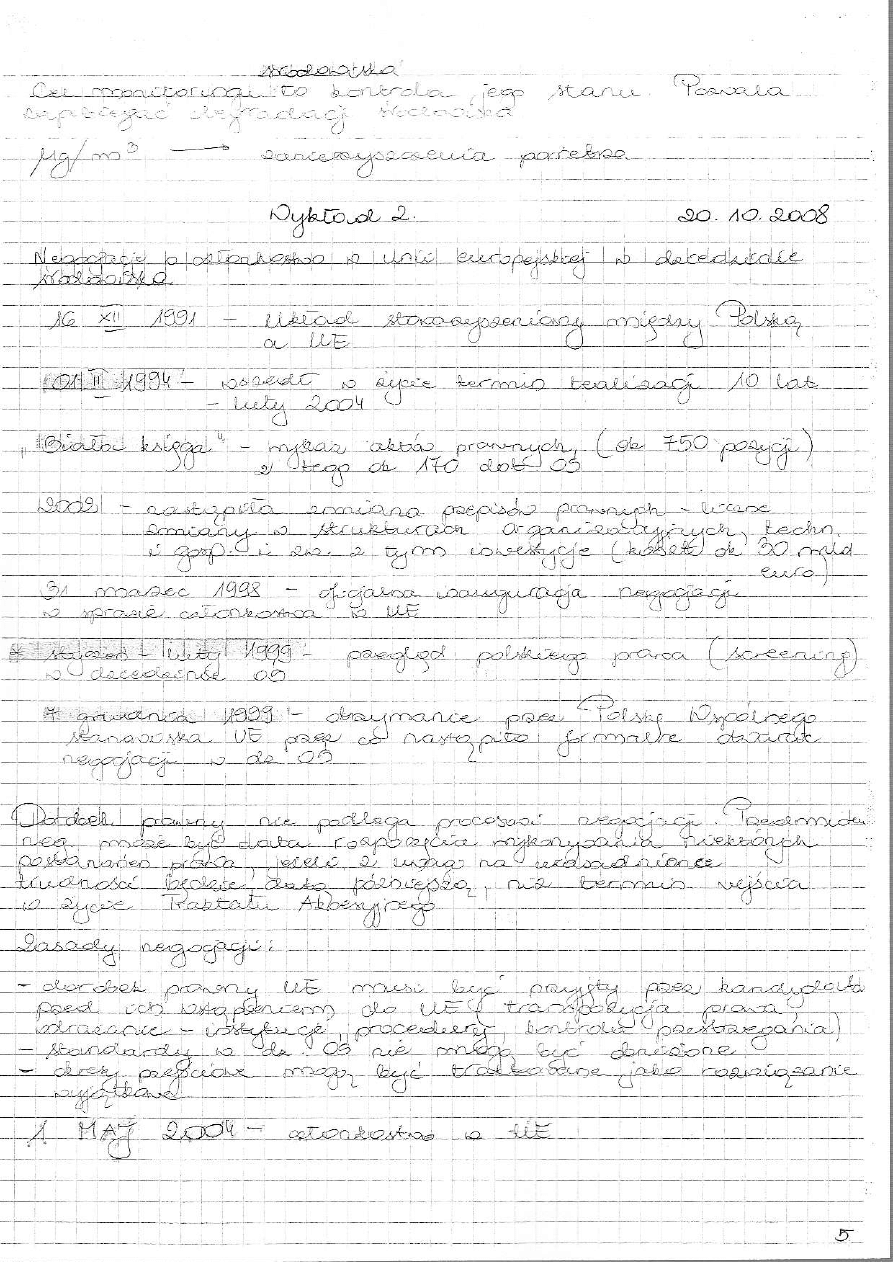 środowiska
Cel monitoringu to kontrola jego stanu. Pozwala
zapobiegać degradacji środowiska
µg/m³ → zanieczyszczenia powietrza
Wykład 2. 20.10.2008
Negocjacje o członkostwo w Unii europejskiej w dziedzinie
środowiska
16 XII 1991 – Układ stowarzyszeniowy między Polską
a UE
01 II 1994 – wszedł w życie termin realizacji 10 lat
– luty 2004
„Biała księga" – wykaz aktów prawnych, (ok 750 pozycji)
z tego ok 170 dot. OŚ
2002 – nastąpiła zmiana przepisów prawnych –
zmiany w strukturach organizacyjnych, techn.
i gosp. i zw. z tym inwestycje (koszt ok 30 mld
euro)
31 marzec 1998 – oficjalna inauguracja negocjacji
w sprawie członkostwa w UE
* styczeń – luty 1999 – przegląd polskiego prawa (screening)
w dziedzinie OŚ
* grudzień 1999 – otrzymanie przez Polskę Wspólnego
stanowiska UE przez co nastąpiło formalne otwarcie
negocjacji w dz OŚ
Dorobek prawny nie podlega procesowi negocjacji. Przedmiotem
neg. może być data rozpoczęcia wykonywania niektórych
postanowień prawa, jeżeli z uwagi na uzasadnione
trudności będzie datą późniejszą, niż termin wejścia
w życie Traktatu Akcesyjnego
Zasady negocjacji:
– dorobek prawny UE musi być przyjęty przez kandydata
przed ich wstąpieniem do UE (transpozycja prawa,
wdrażanie – instytucje, procedury, kontrola przestrzegania)
– standardy w dz. OŚ nie mogą być obniżone
– okresy przejściowe mogą być traktowane jako rozwiązanie
wyjątkowe
1 MAJ 2004 – członkostwo w UE
5